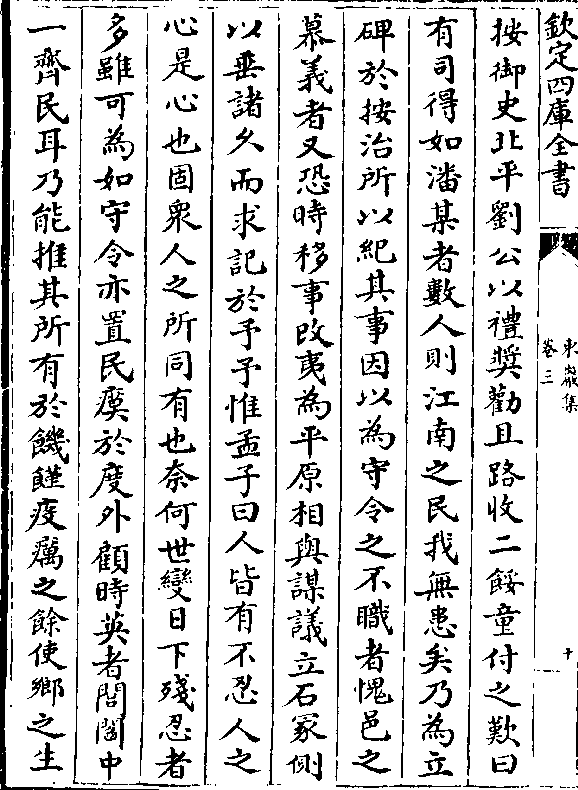 欽定四庫全書
東巖集
卷三
十
按御史北平劉公以禮奬勸且路收二餒童付之歎曰
有司得如潘某者數人則江南之民我無患矣乃為立
碑於按治所以紀其事因以為守令之不職者愧邑之
慕義者又恐時移事改夷為平原相與謀議立石冢側
以垂諸久而求記於予予惟孟子曰人皆有不忍人之
心是心也固衆人之所同有也奈何世變日下殘忍者
多雖可為如守令亦置民瘼於度外顧時英者閭閻中
一齊民耳乃能推其所有於饑饉疫癘之餘使鄉之生